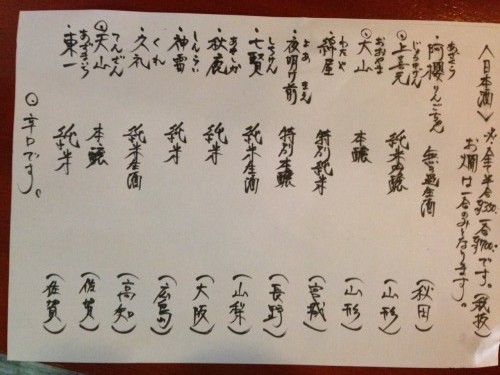 〈日本酒〉 ※全 半合¥350 一合¥700です。(税抜)
お燗は一合のみとなります。
あざくら
・阿櫻りんご 生酒 (秋田)
じょうきげん
⊙上喜元 純米吟醸 (山形)
おおやま
⊙大山 本醸 (山形)
わたや
・綿屋 特別純米 (宮城)
よあ まえ
・夜明け前 特別本醸 (長野)
しちけん
・七賢 純米生酒 (山梨)
あきしか
・秋鹿 純米 (大阪)
しんらい
・神雷 純米 (広島)
くれ
・久礼 純米生酒 (高知)
てんざん
⊙天山 本醸 (佐賀)
あずまいち
・東一 純米 (佐賀)
⊙辛口です。